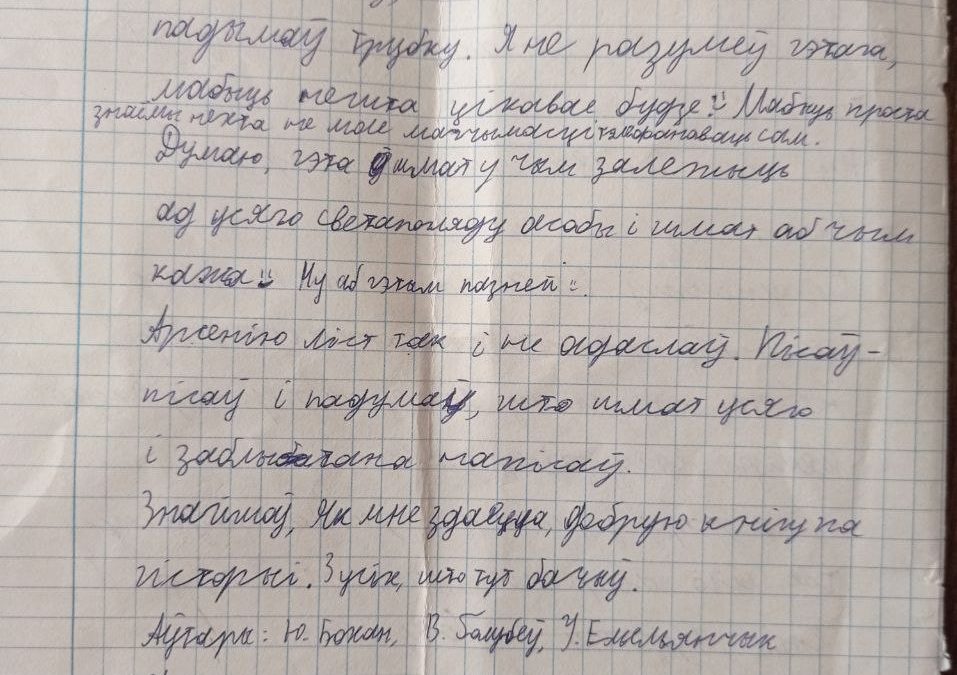 падымаў трубку. Я не разумеў гэтага,
мабыць нешта цікавае будзе! Мабыць проста
знаёмы нехта не мае магчымасці тэлефанаваць сам.
Думаю, гэта шмат у чым залежыць
ад усяго светапогляду асобы і шмат аб чым
кажа Ну аб гэтым пазней
Арсенію ліст так і не адаслаў. Пісаў-
пісаў і падумаў, што шмат усяго
і заблытана напісаў.
Знайшоў, як мне здаецца, добрую кнігу па
гісторыі. З усіх, што тут бачыў.
Аўтары: Ю. Бохан, В. Голубеў, У. Емельянчык